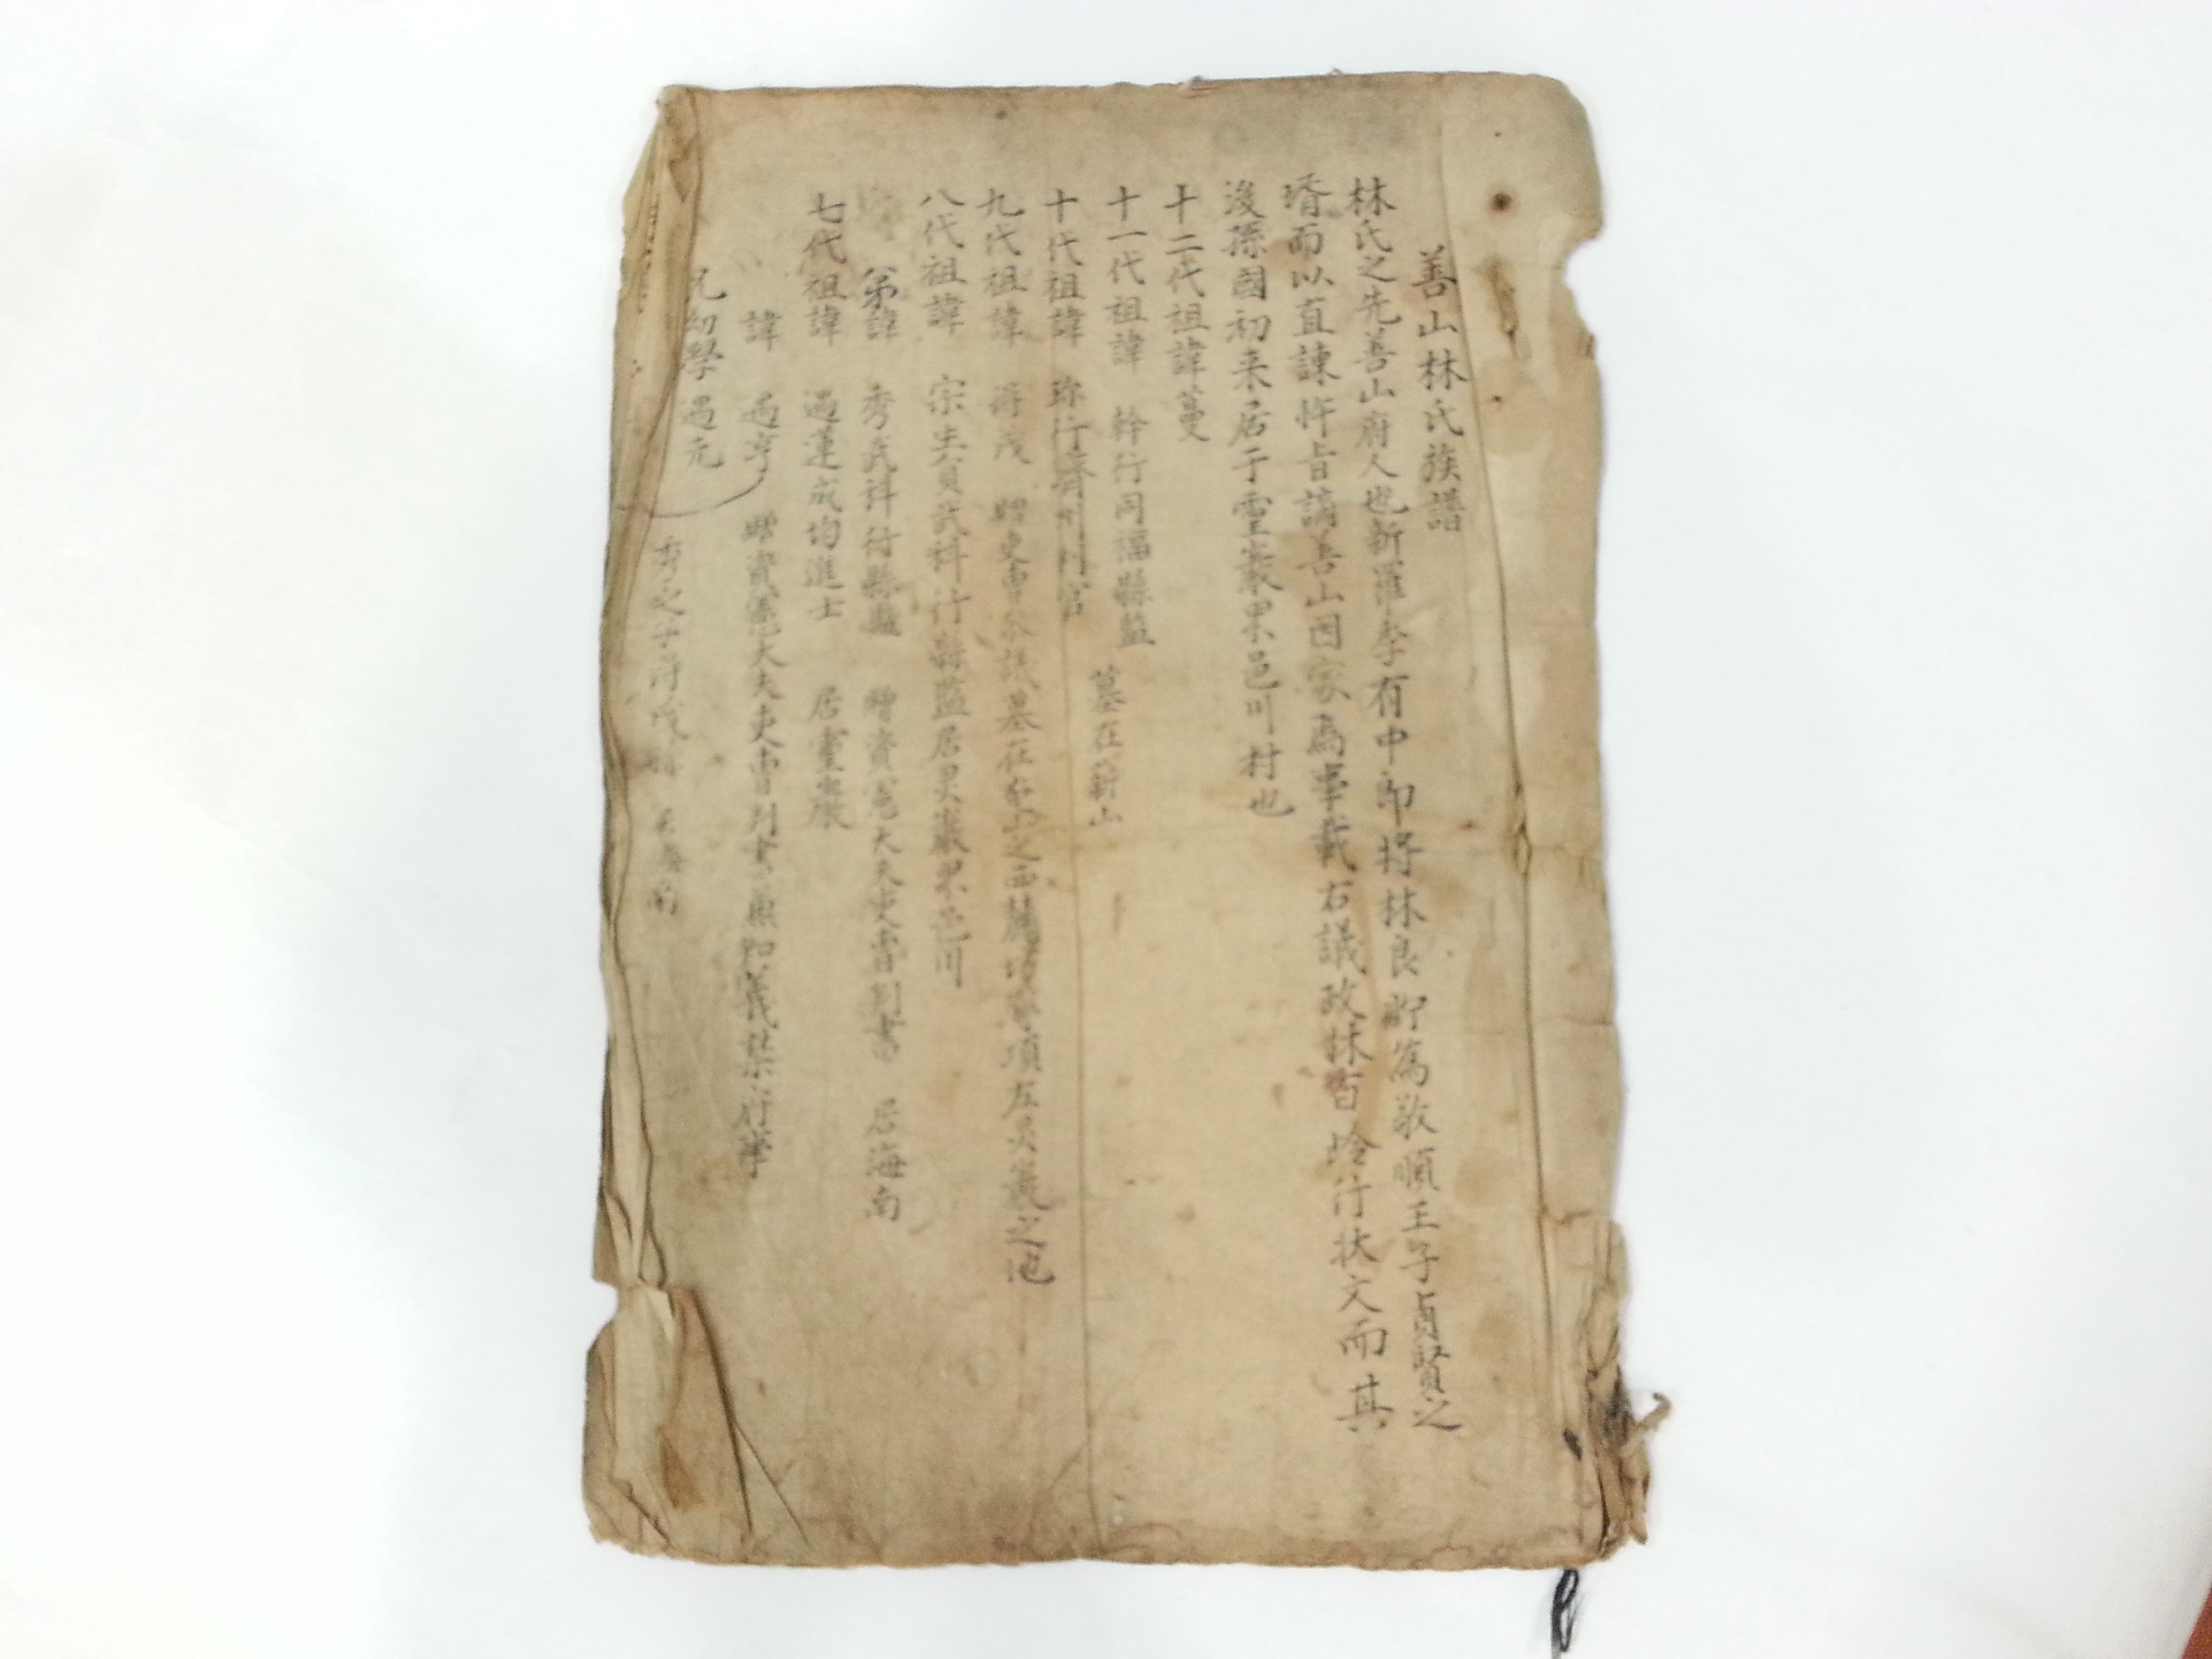 善山林氏族譜
林氏之先善山府人也新羅季有中郎將林良貯為敬順王子貞賢之
壻而以直諫忤旨謫善山因家焉事載右議政林百岭行狀文而其
後孫國初来居于靈巖果邑川村也
十二代祖諱蔓
十一代祖諱 幹行同福縣監
墓在薪山
十代祖諱 珎行濟州判官
九代祖諱 得茂 贈吏曹叅議墓在 山之西麓 項左灵巖之地
八代祖諱 宗 武科行縣監居灵巖果邑川
弟諱 秀武科行縣監 贈資憲大夫吏曹判書 居海南
七代祖諱 遇蓮成均進士 居靈巖
諱 遇亨 贈資憲大夫吏曹判書兼知義禁府事
兄幼學遇元
秀之子 海南